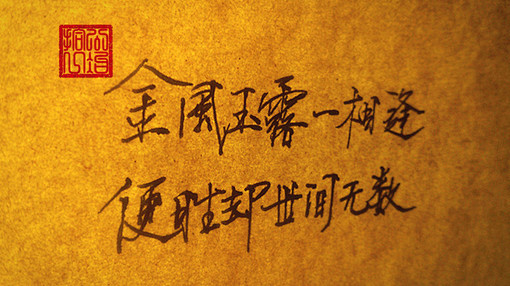 金风玉露一相逢
便胜却世间无数